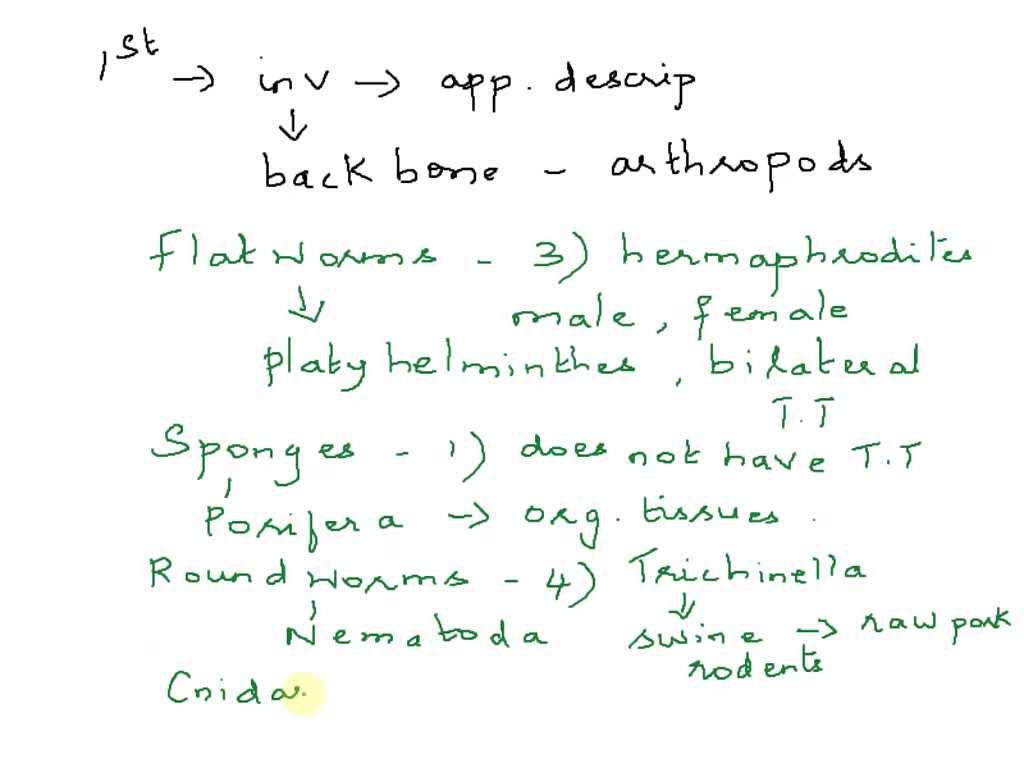 1st → inv → app. descrip
↓
backbone - arthropods
Flatworms - 3) hermaphrodites
↓ male, female
platyhelminthes, bilateral
T.T
Sponges - 1) does not have T.T
Porifera → org. tissues.
Roundworms - 4) Trichinella
↓
Nematoda swine → raw pork
rodents
Cnida